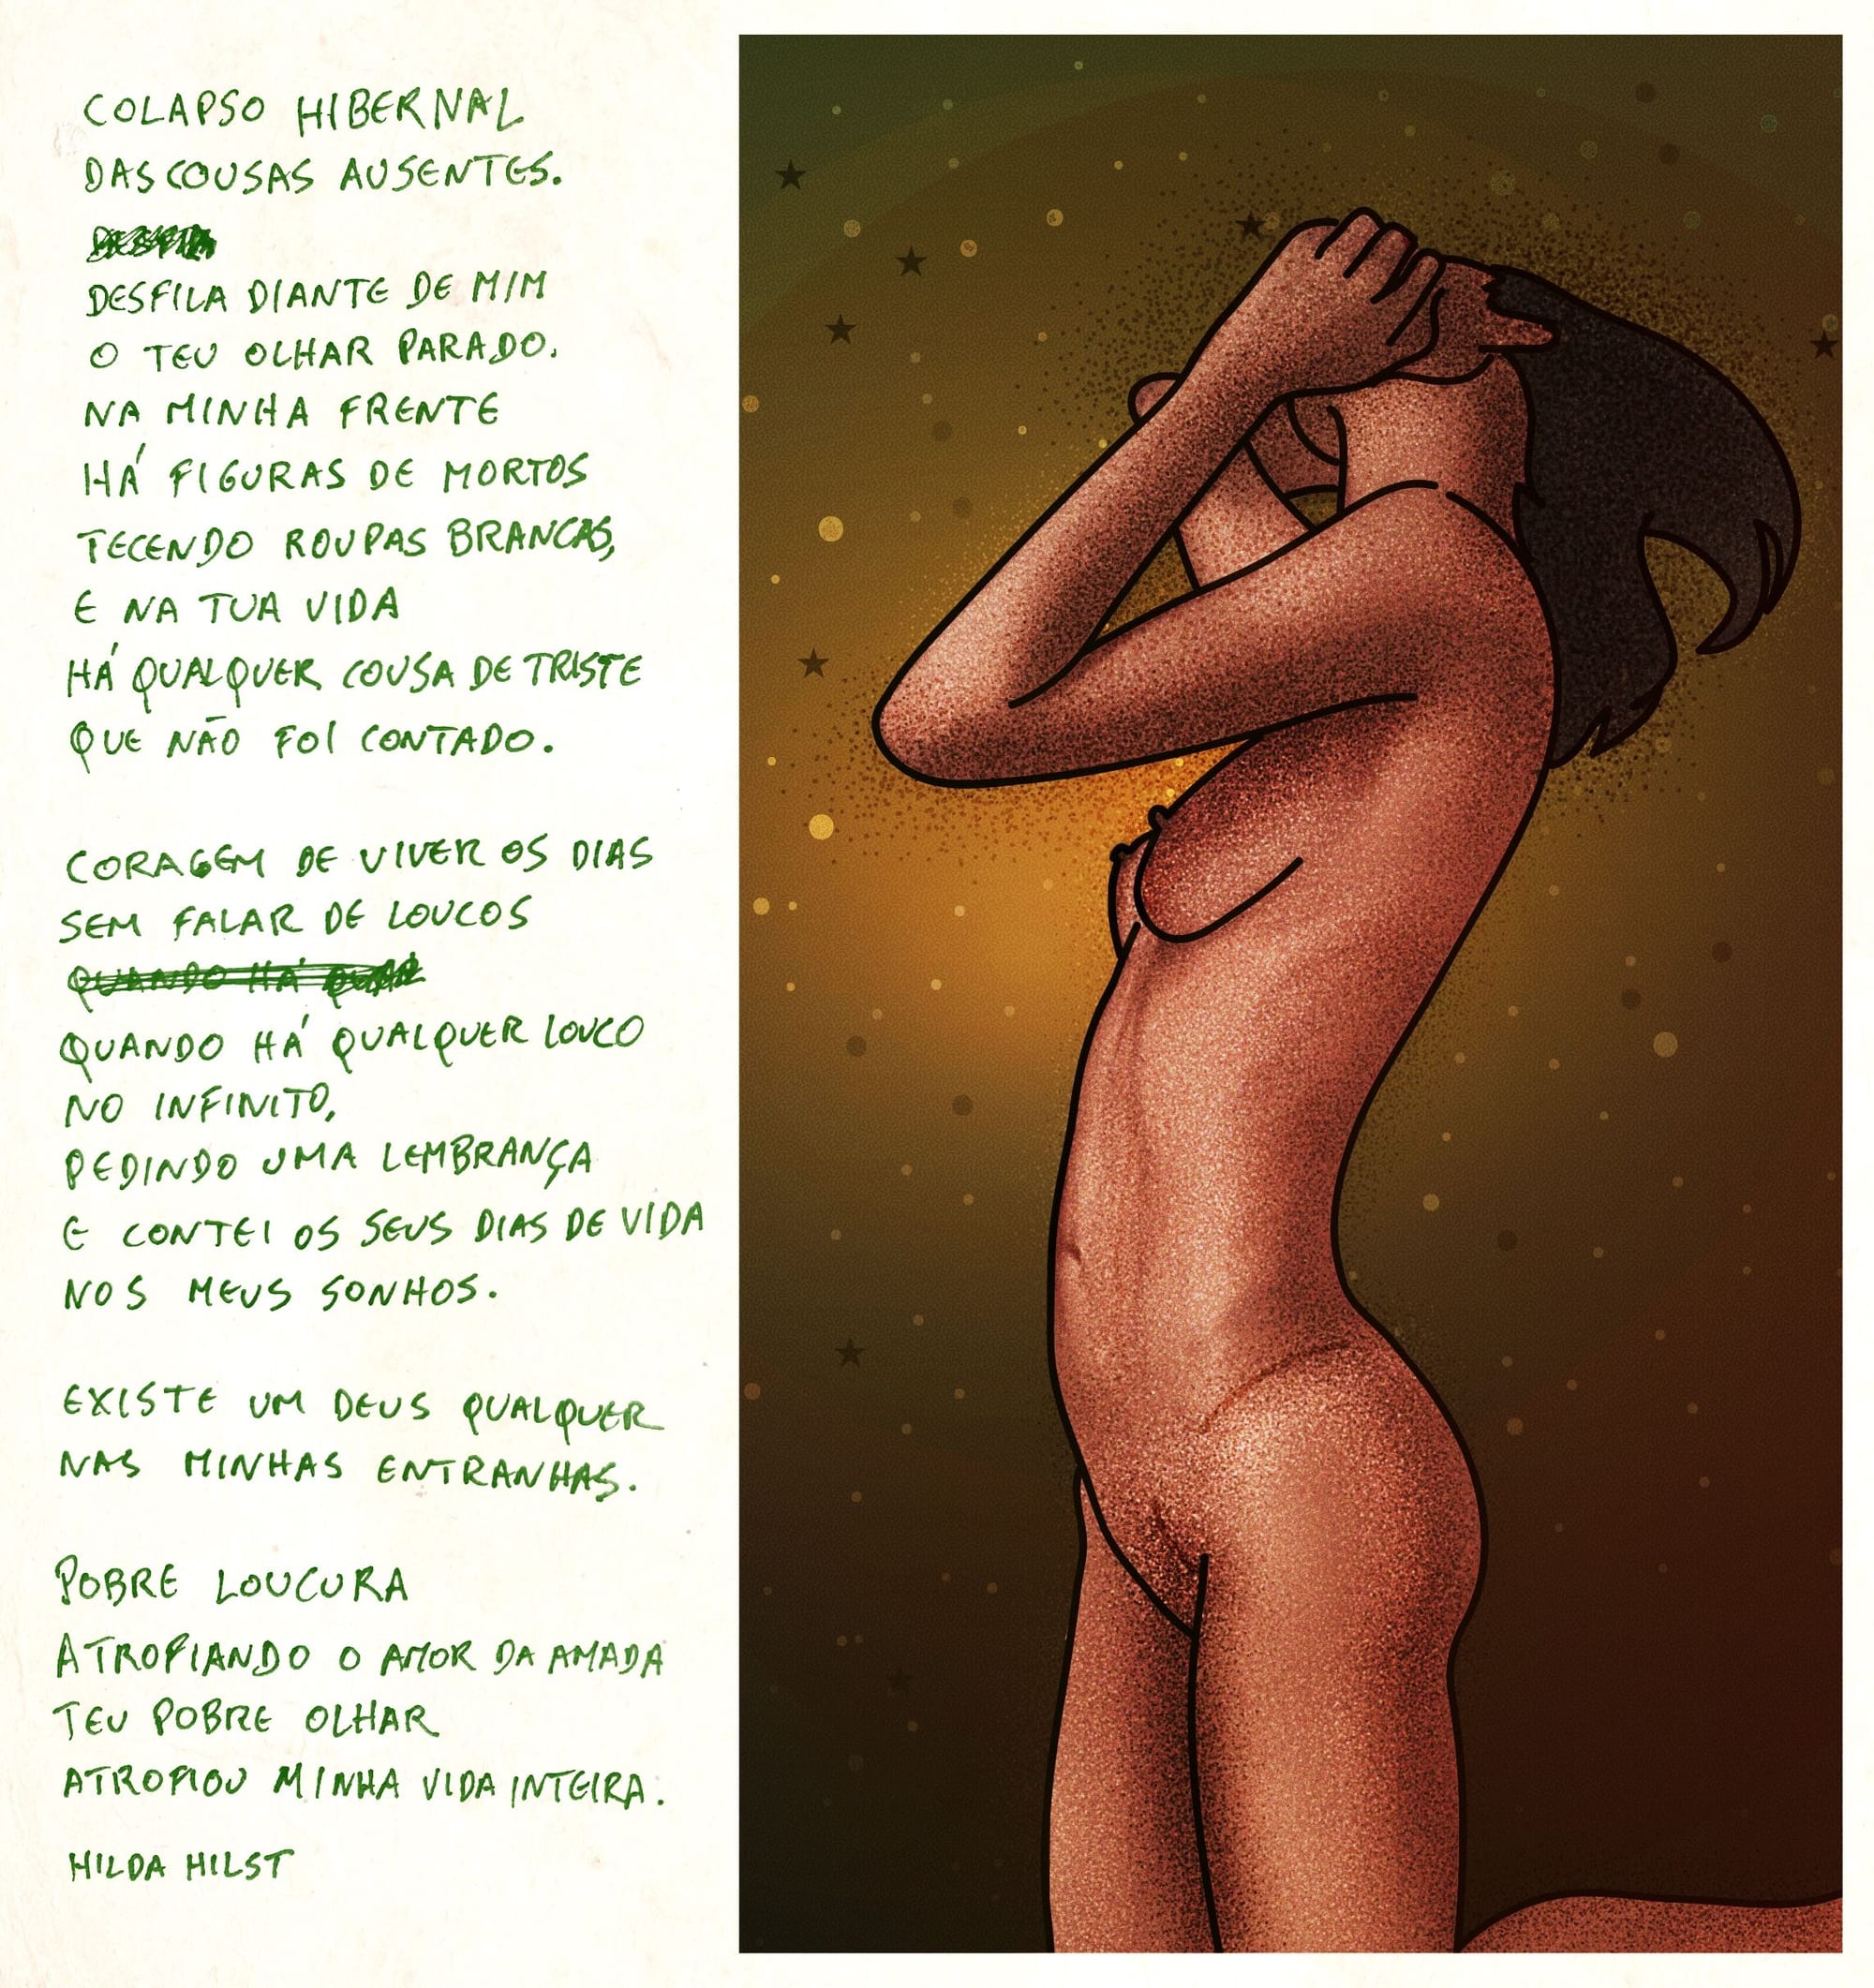 COLAPSO HIBERNAL
DAS COUSAS AUSENTES.
DESFILA DIANTE DE MIM
O TEU OLHAR PARADO.
NA MINHA FRENTE
HÁ FIGURAS DE MORTOS
TECENDO ROUPAS BRANCAS,
E NA TUA VIDA
HÁ QUALQUER COUSA DE TRISTE
QUE NÃO FOI CONTADO.
CORAGEM DE VIVER OS DIAS
SEM FALAR DE LOUCOS
QUANDO HÁ
QUANDO HÁ QUALQUER LOUCO
NO INFINITO,
PEDINDO UMA LEMBRANÇA
E CONTEI OS SEUS DIAS DE VIDA
NOS MEUS SONHOS.
EXISTE UM DEUS QUALQUER
NAS MINHAS ENTRANHAS.
POBRE LOUCURA
ATROFIANDO O AMOR DA AMADA
TEU POBRE OLHAR
ATROFIOU MINHA VIDA INTEIRA.
HILDA HILST